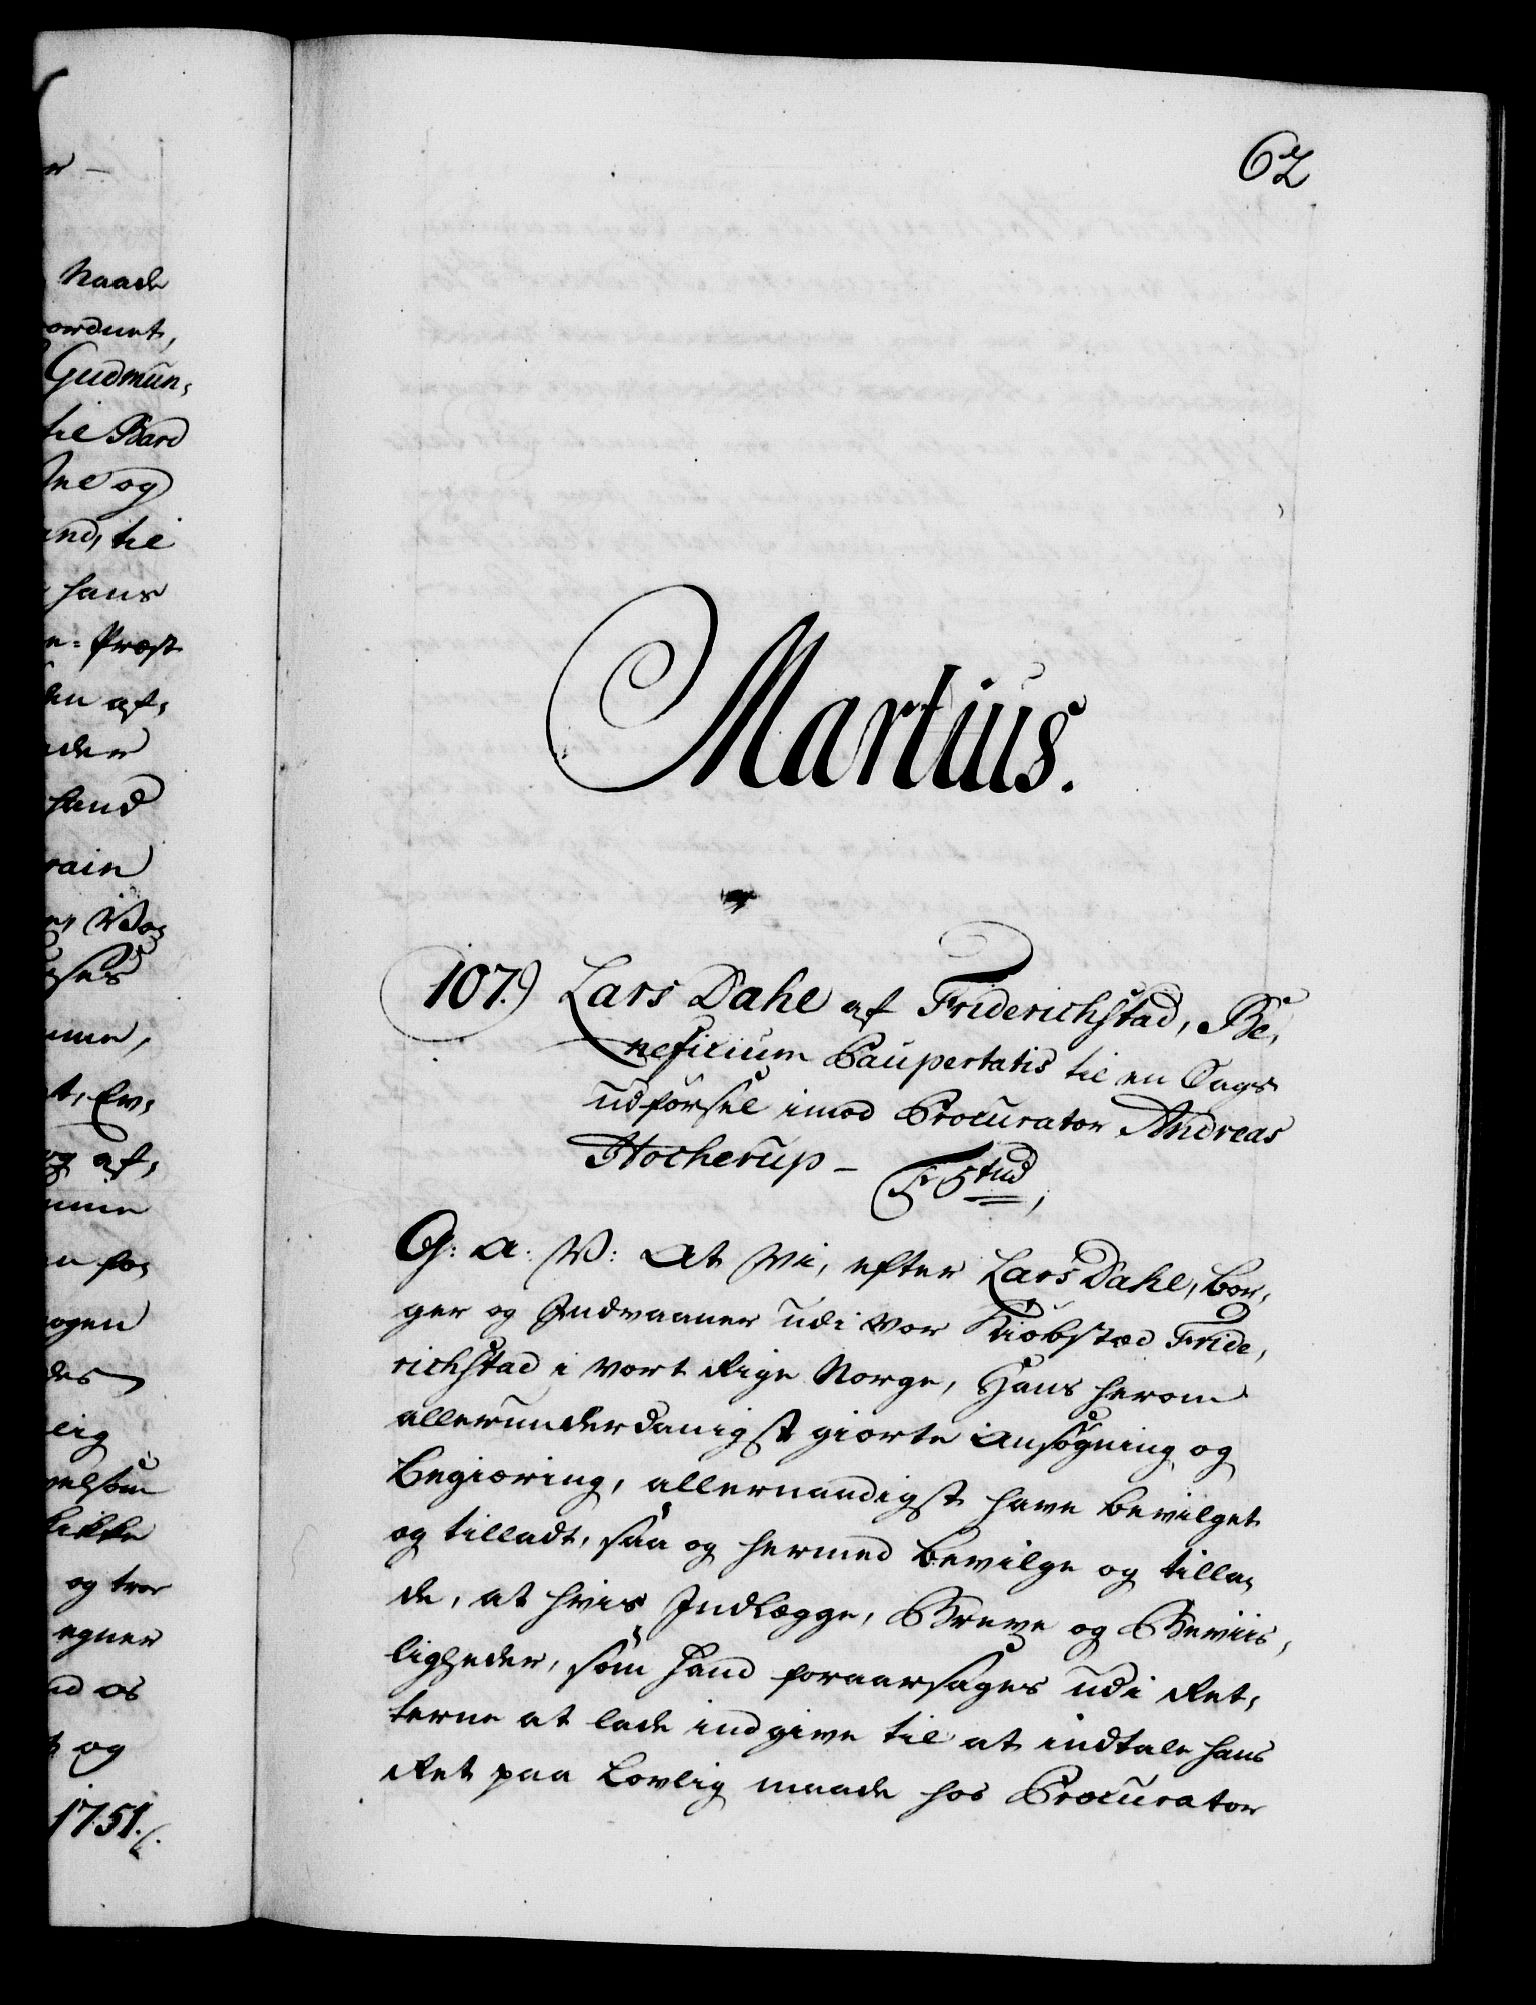 62
Martius.
107.) Lars Dahl af Friderichstad, Be,
neficium Paupertatis til en Sags
udførsel imod Procurator Andreas
Hocherup – Fr Stud,
G: A: V: At Vi, efter Lars Dahl, Bor,
ger og Indvaaner udi vor Kiøbsted Fride,
richstad i vort Rige Norge, Hans herom
allerunderdanigst giorte Ansøgning og
Begiæring, allernaadigst have bevilget
og tilladt, saa og hermed bevilge og tilla,
de, at hvis Indlægge, Breve og Beviis,
ligheder, som hand foraarsages udi Ret,
terne at lade indgive til at indtale hans
Ret paa Lovlig maade hos Procurator
Naade
ordnet,
Gudmun,
til Bard
og
til
hans
Præst
af,
hand
og af,
og troe
egner
og
1751.